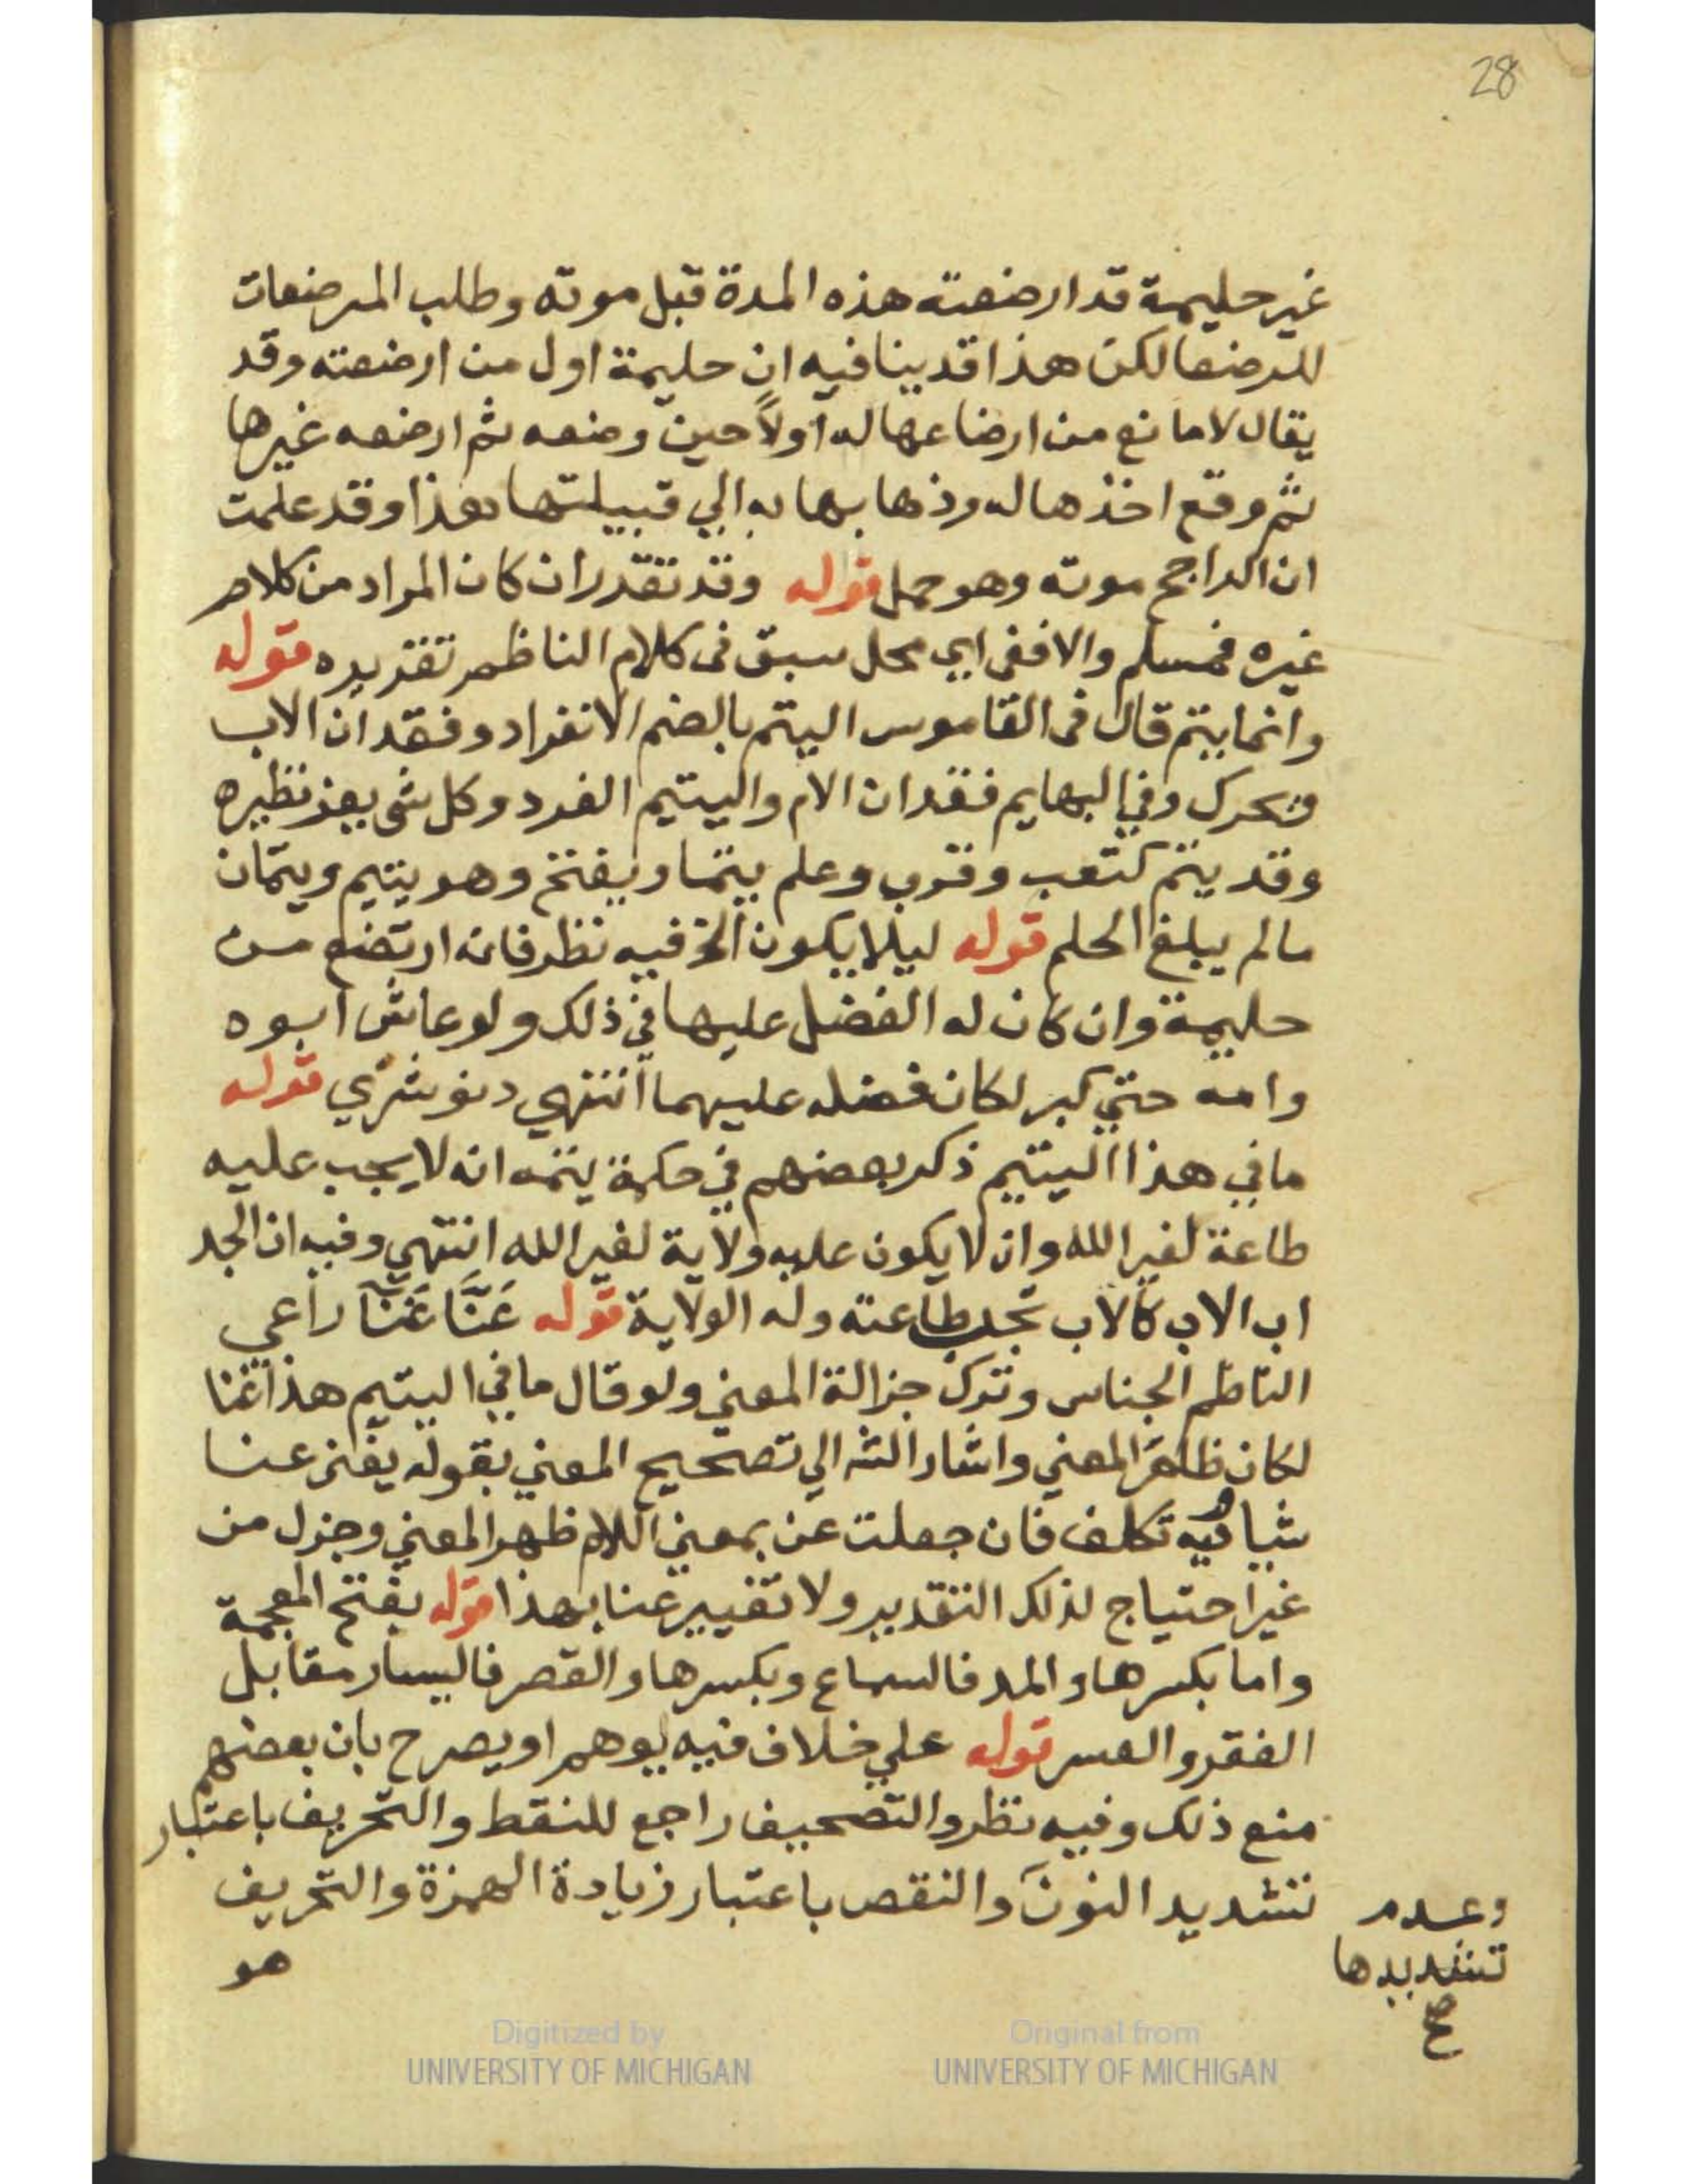 28
غير حليمة قد ارضعته هذه المدة قبل موته وطلب المرضعات
للرضعا لكن هذا قد ينافيه ان حليمة اول من ارضعته وقد
يقال لا مانع من ارضاعها له أولاً حين وضعه ثم ارضعه غيرها
ثم وقع اخذها له وذهابها به الي قبيلتها هذا وقد علمت
ان الراجح موته وهو حمل قوله وقد تقدر ان كان المراد من كلام
غيره فمسلم والا ففى اي محل سبق فى كلام الناظم تقديره قوله
وانما يتم قال فى القاموس اليتم بالضم الانفراد وفقدان الاب
ويحرك وفي البهايم فقدان الام واليتيم الفرد وكل شى يعز نظيره
وقد يتم كتعب وقرب وعلم يتما ويفتح وهو يتيم ويتمان
مالم يبلغ الحلم قوله ليلا يكون الخ فيه نظر فانه ارتضع من
حليمة وان كان له الفضل عليها في ذلك ولو عاش ابوه
وامه حتي كبر لكان فضله عليهما انتهي دنوشري قوله
مافي هذا اليتيم ذكر بعضهم في حكمة يتمه انه لا يجب عليه
طاعة لغير الله وان لا يكون عليه ولاية لغير الله انتهي وفيه ان الجد
اب الاب كالاب تجب طاعته وله الولاية قوله عَنَّا غَنَآ راعي
الناظم الجناس وترك جزالة المعني ولو قال مافي اليتيم هذا غنا
لكان ظاهر المعني واشار الشه الي تصحيح المعني بقوله يغني عنا
شيا وفيه تكلف فان جعلت عن بمعني اللام ظهر المعني وجزل من
غير احتياج لذلك التقدير ولا تغيير عنا بهذا قوله بفتح المعجمة
واما بكسرها والمد فالسماع وبكسرها والقصر فاليسار مقابل
الفقر والعسر قوله علي خلاف فيه يوهم او يصرح بان بعضهم
منع ذلك وفيه نظر والتصحيف راجع للنقط والتحريف باعتبار
تشديد النون والنقص باعتبار زيادة الهمزة والتحريف
وعدم
تشديدها
صح
هو
Digitized by
UNIVERSITY OF MICHIGAN
Original from
UNIVERSITY OF MICHIGAN